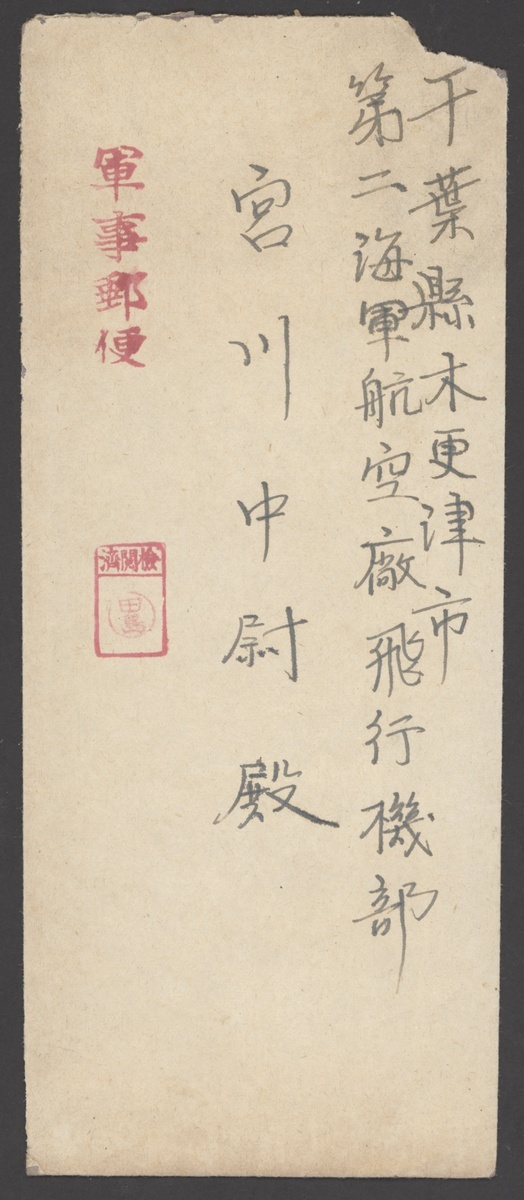 千葉縣木更津市
第二海軍航空廠飛行機部
宮川中尉殿
軍事郵便
檢閲濟